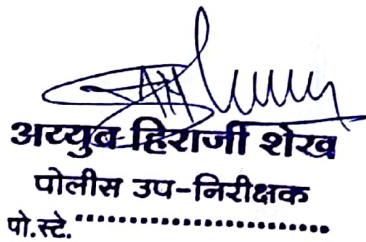 अय्युब हिराजी शेख
पोलीस उप-निरीक्षक
पो.स्टे. ..............................